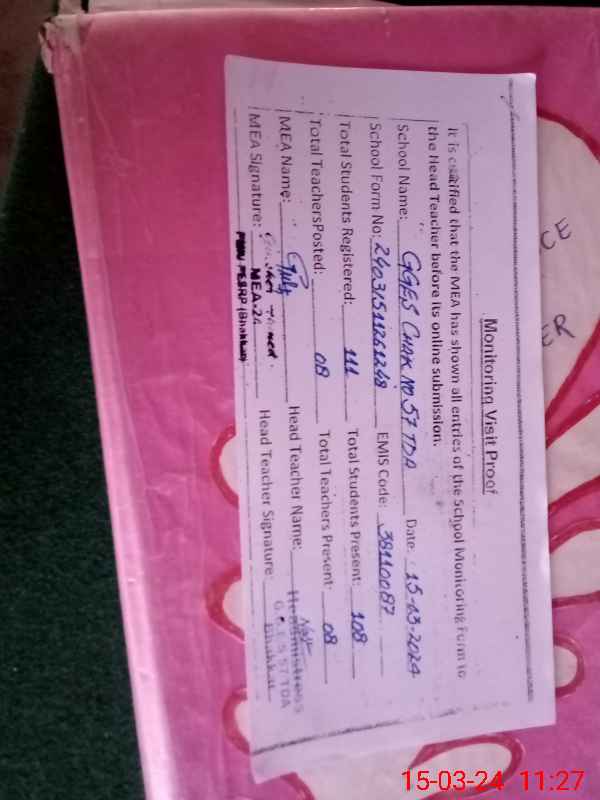 Monitoring Visit Proof
It is certified that the MEA has shown all entries of the School Monitoring Form to
the Head Teacher before its online submission.
School Name: GGES CHAK NO 57 TDA Date: 15-03-2024
School Form No: 24031511261248 EMIS Code: 38110087
Total Students Registered: 111 Total Students Present: 108
Total TeachersPosted: 08 Total Teachers Present: 08
MEA Name: Head Teacher Name:
MEA Signature: Head Teacher Signature:
MEA-24
PMIU PESRP (Bhakkar)
Headmistress
G.G.E.S 57/TDA
Bhakkar
CE
ER
15-03-24 11:27